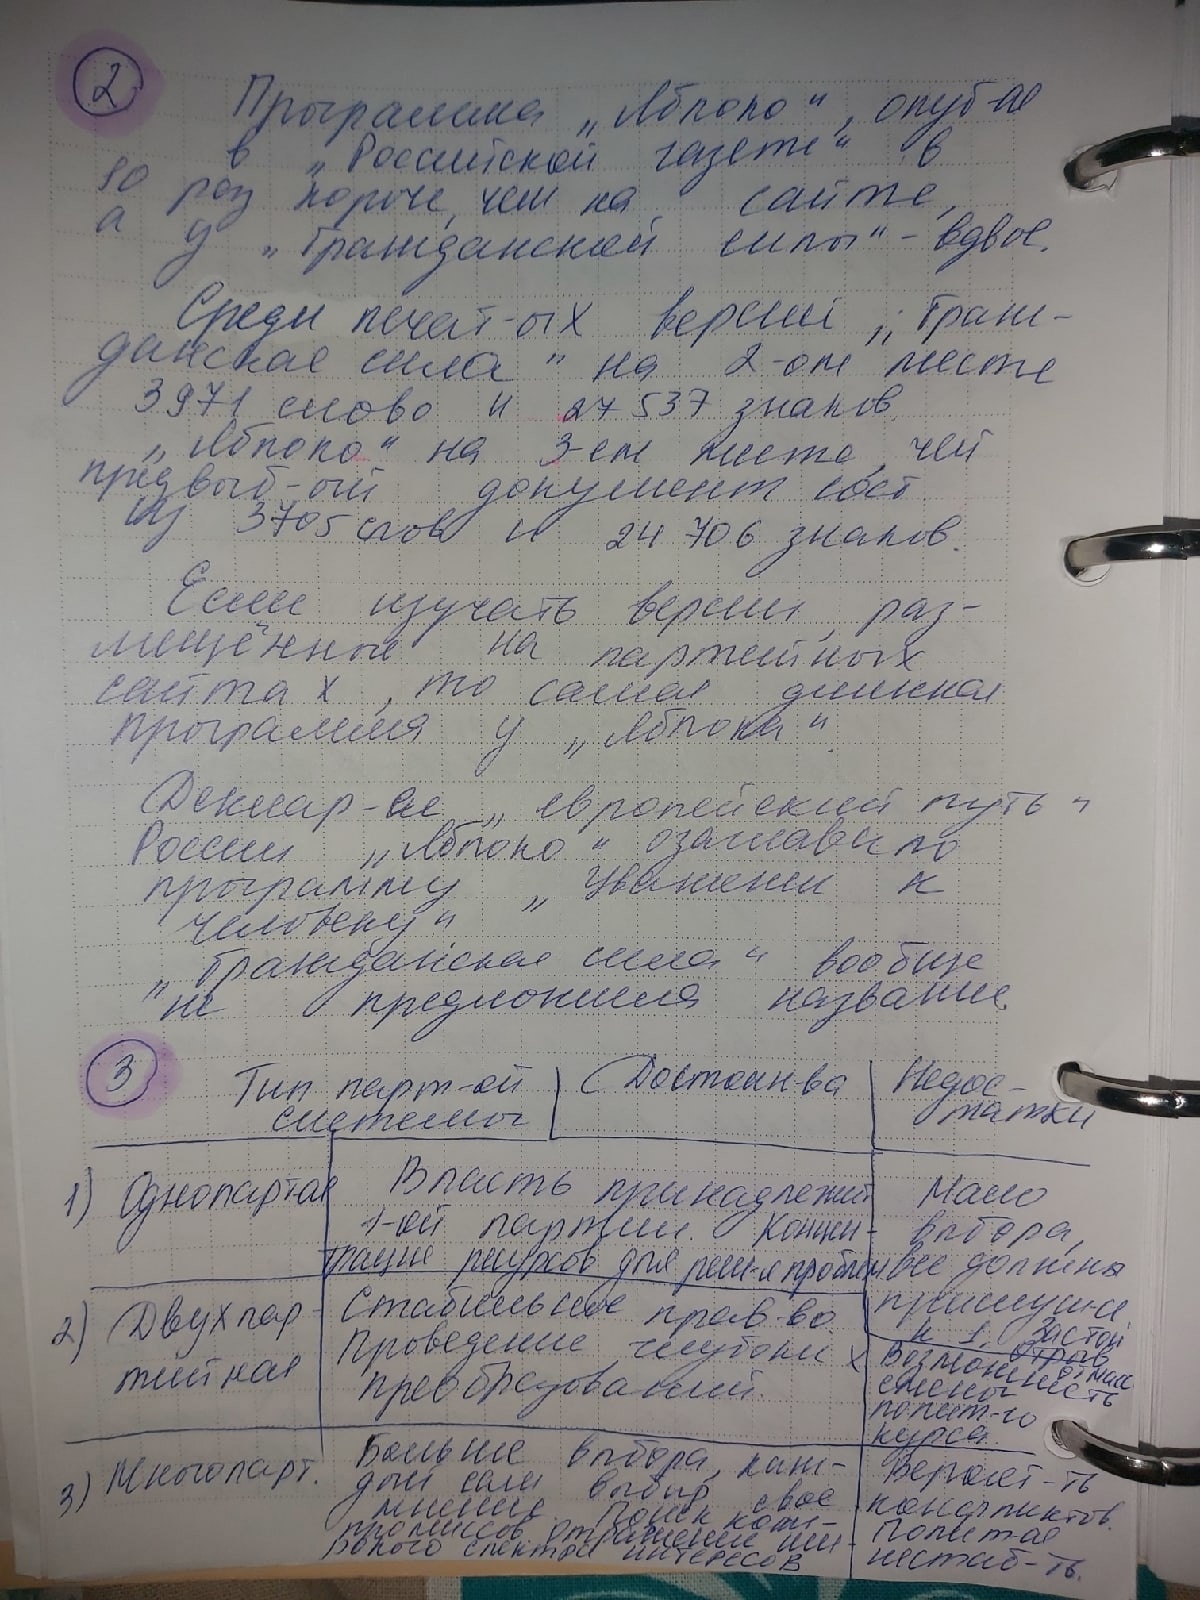 2
Программа „Яблоко", опуб-ая
в „Российской газете" в
10 раз короче, чем на сайте,
а у „Гражданской силы" - вдвое.
Среди печат-ых версий „Граж-
данская сила" на 2-ом месте
3971 слово и 27 537 знаков
„Яблоко" на 3-ем месте, чей
предвыб-ый документ сост
из 3705 слов и 24 706 знаков.
Если изучать версии, раз-
мещённые на партийных
сайтах, то самая длинная
программа у „Яблока".
Деклар-ая „европейский путь"
России „Яблоко" озаглавило
программу „Уважении к
человеку"
„Гражданская сила" вообще
не предложила название.
3
Тип парт-ой системы | Достоин-ва | Недос-
татки
1) Однопартая
Власть принадлежит
1-ой партии. Концен-
трация ресурсов для реш-я проблем
Мало
выбора,
все должны
примкнуть
к 1. Застой
2) Двухпар-
тийная
Стабильное прав-во.
Проведение глубоких
преобразований.
Возможность
смены
полит-го
курса.
3) Многопарт.
Больше выбора, каж-
дый сам выбир свое
мнение. Поиск ком-
промиссов, отражение ши-
рокого спектра интересов
Вероят-ть
конфликтов.
Полит-ая
нестаб-ть.